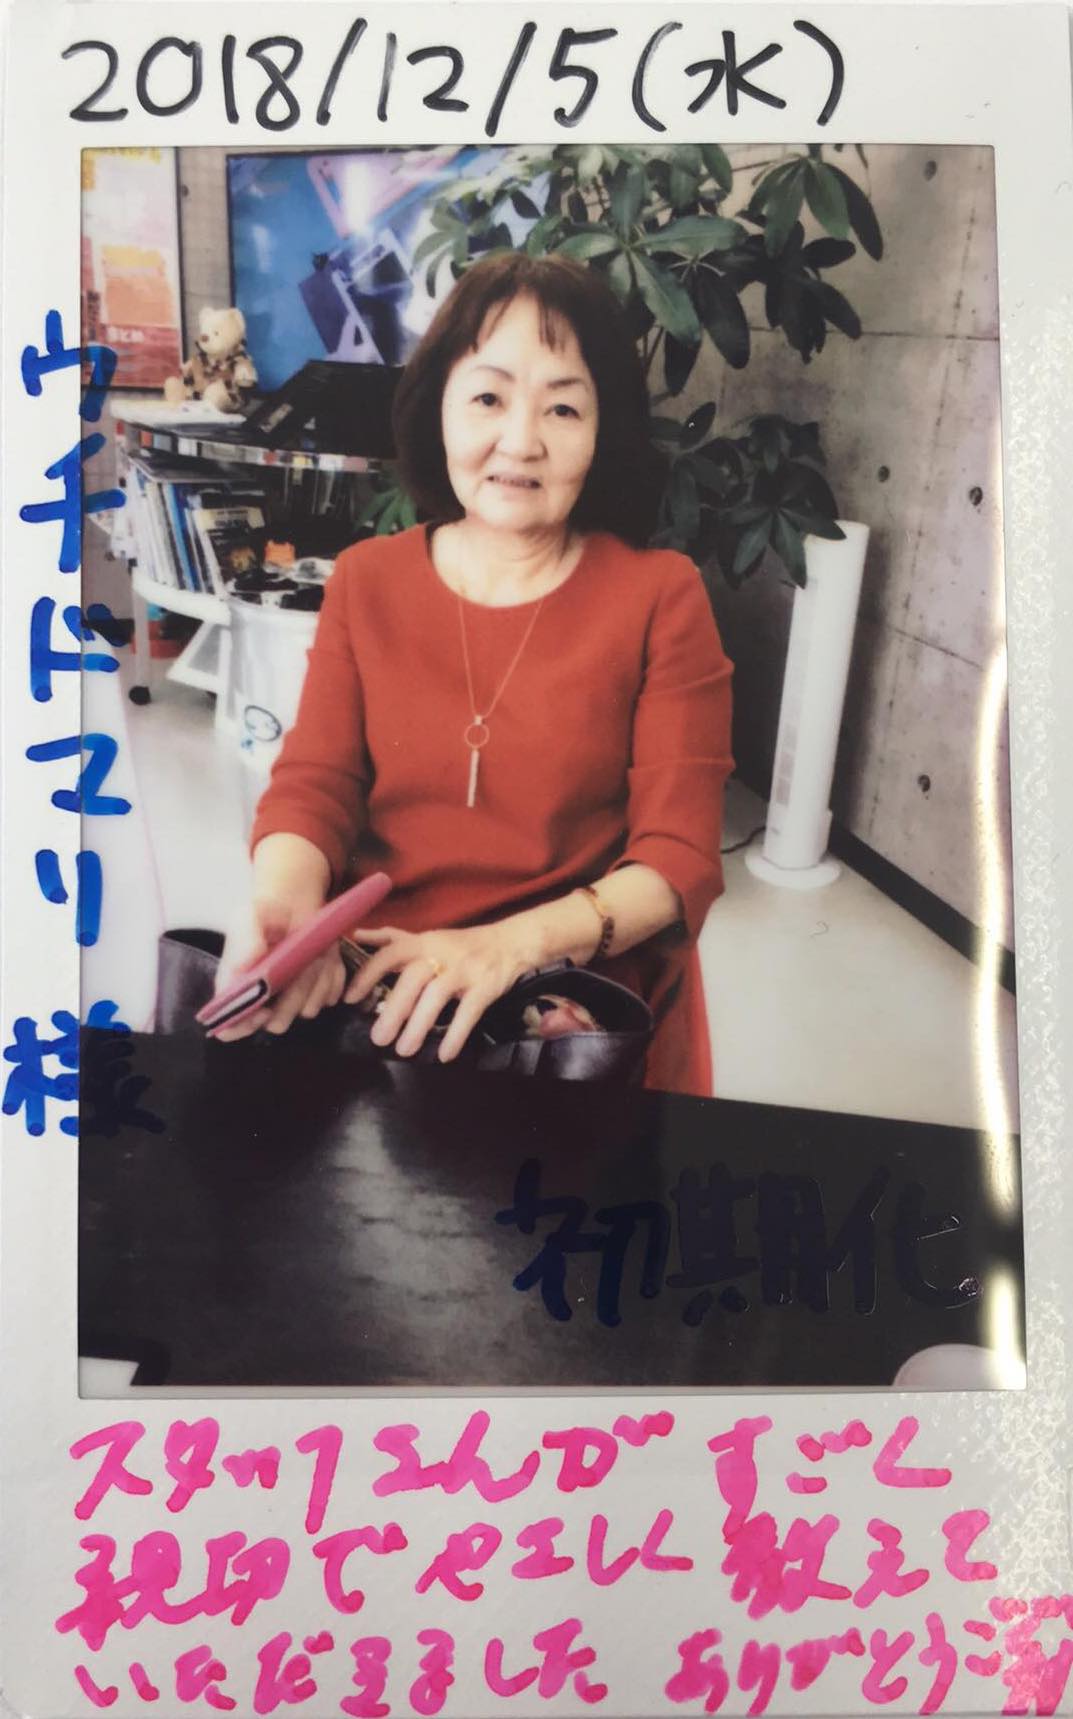 2018/12/5(水)
ウチデマリ様
初期化
スタッフさんが すごく
親切で やさしく 教えて
いただきました ありがとう